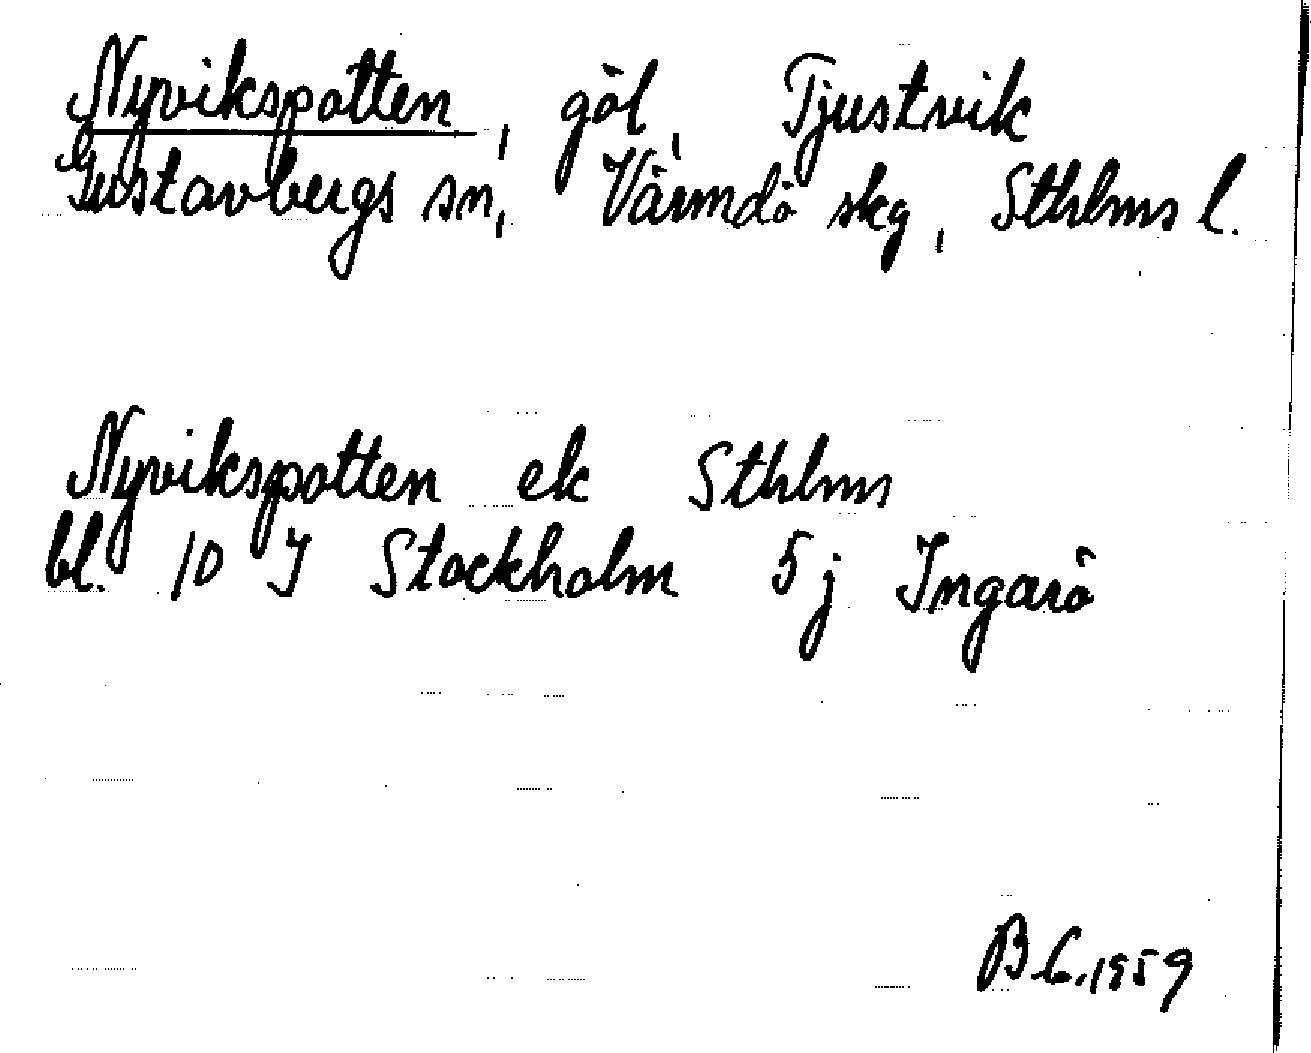 Nyvikspotten, göl, Tjustvik
Gustavbergs sn, Värmdö skg, Sthlms l.
Nyvikspotten ek Sthlms
bl. 10 J Stockholm 5 j Ingarö
B G. 1959